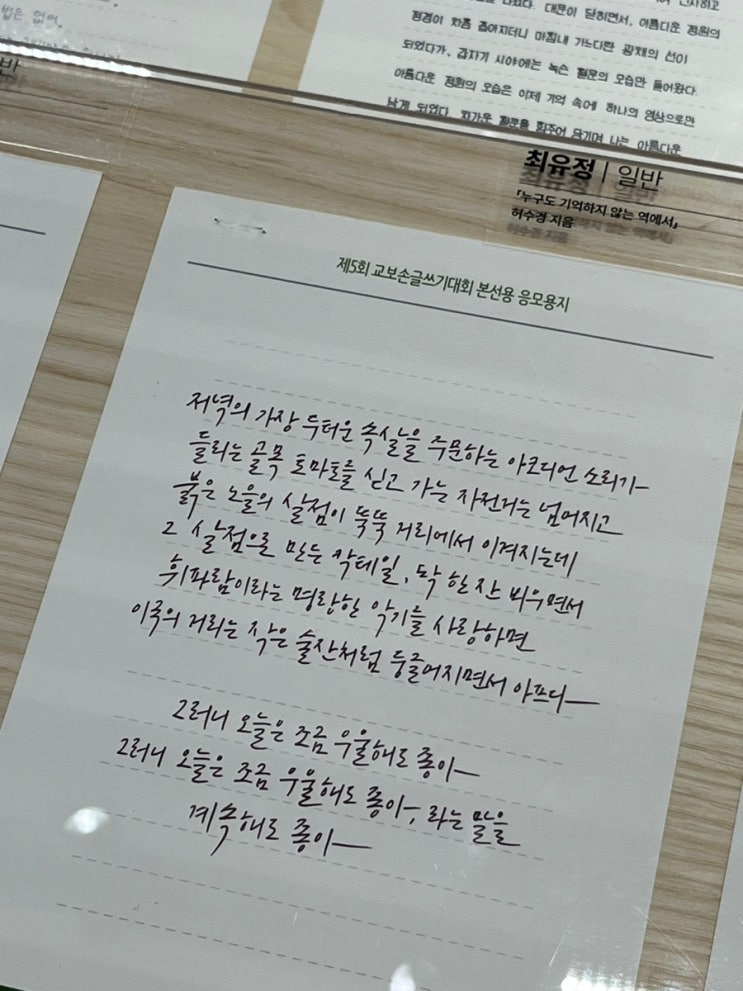 법은 없어.
반
나섰다. 대문이 닫히면서, 아름다운 정원의
정경이 차츰 좁아지더니 마침내 가느다란 광채의 선이
되었다가, 갑자기 시야에는 녹슨 철문의 모습만 들어왔다.
아름다운 정원의 모습은 이제 기억 속에 하나의 영상으로만
남게 되었다. 차가운 철문을 힘주어 당기며 나는 아름다운
최유정 | 일반
「누구도 기억하지 않는 역에서」
허수경 지음
제5회 교보손글쓰기대회 본선용 응모용지
저녁의 가장 두터운 속살을 주문하는 아코디언 소리가
들리는 골목 토마토를 싣고 가는 자전거는 넘어지고
붉은 노을의 살점이 뚝뚝 거리에서 이겨지는데
그 살점으로 만든 칵테일, 딱 한 잔 비우면서
휘파람이라는 명랑한 악기를 사랑하면
이국의 거리는 작은 술잔처럼 둥글어지면서 아프다
그러니 오늘은 조금 우울해도 좋아
그러니 오늘은 조금 우울해도 좋아, 라는 말을
계속해도 좋아